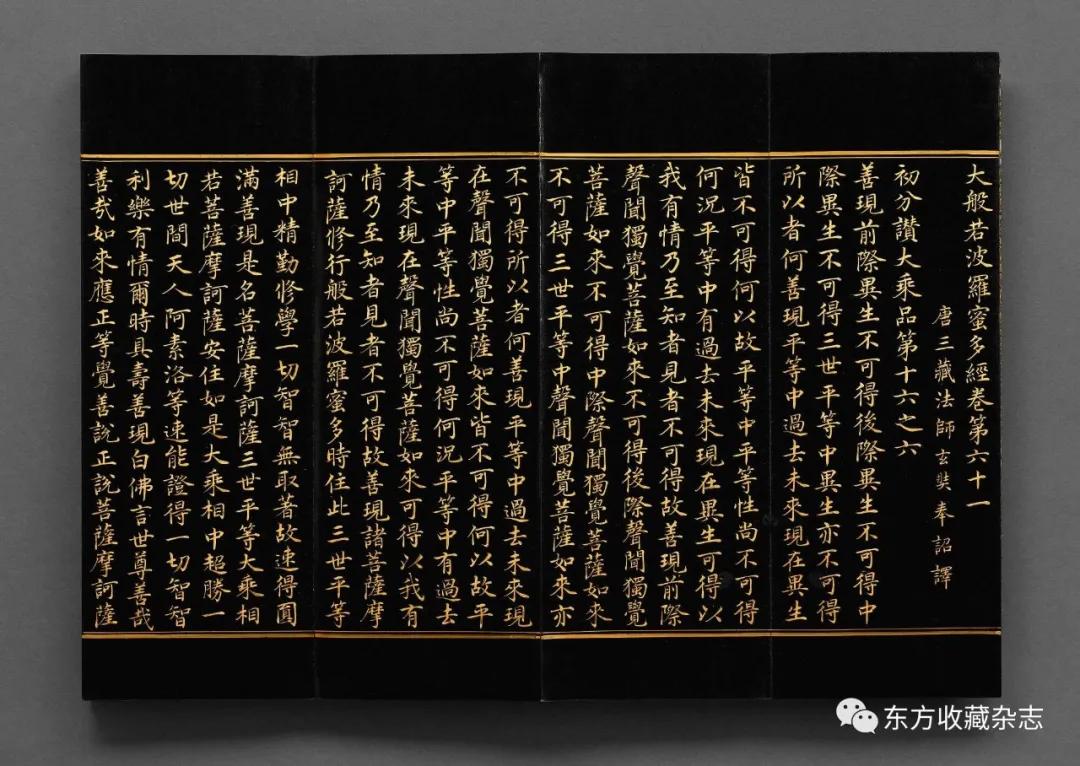 大般若波羅蜜多經卷第六十一
唐三藏法師玄奘奉詔譯
初分讚大乘品第十六之六
善現前際異生不可得後際異生不可得中
際異生不可得三世平等中異生亦不可得
所以者何善現平等中過去未來現在異生
皆不可得何以故平等中平等性尚不可得
何況平等中有過去未來現在異生可得以
我有情乃至知者見者不可得故善現前際
聲聞獨覺菩薩如來不可得後際聲聞獨覺
菩薩如來不可得中際聲聞獨覺菩薩如來
不可得三世平等中聲聞獨覺菩薩如來亦
不可得所以者何善現平等中過去未來現
在聲聞獨覺菩薩如來皆不可得何以故平
等中平等性尚不可得何況平等中有過去
未來現在聲聞獨覺菩薩如來可得以我有
情乃至知者見者不可得故善現諸菩薩摩
訶薩修行般若波羅蜜多時住此三世平等
相中精勤修學一切智智無取著故速得圓
滿善現是名菩薩摩訶薩三世平等大乘相
若菩薩摩訶薩安住如是大乘相中超勝一
切世間天人阿素洛等速能證得一切智智
利樂有情爾時具壽善現白佛言世尊善哉
善哉如來應正等覺善說正說菩薩摩訶薩
东方收藏杂志